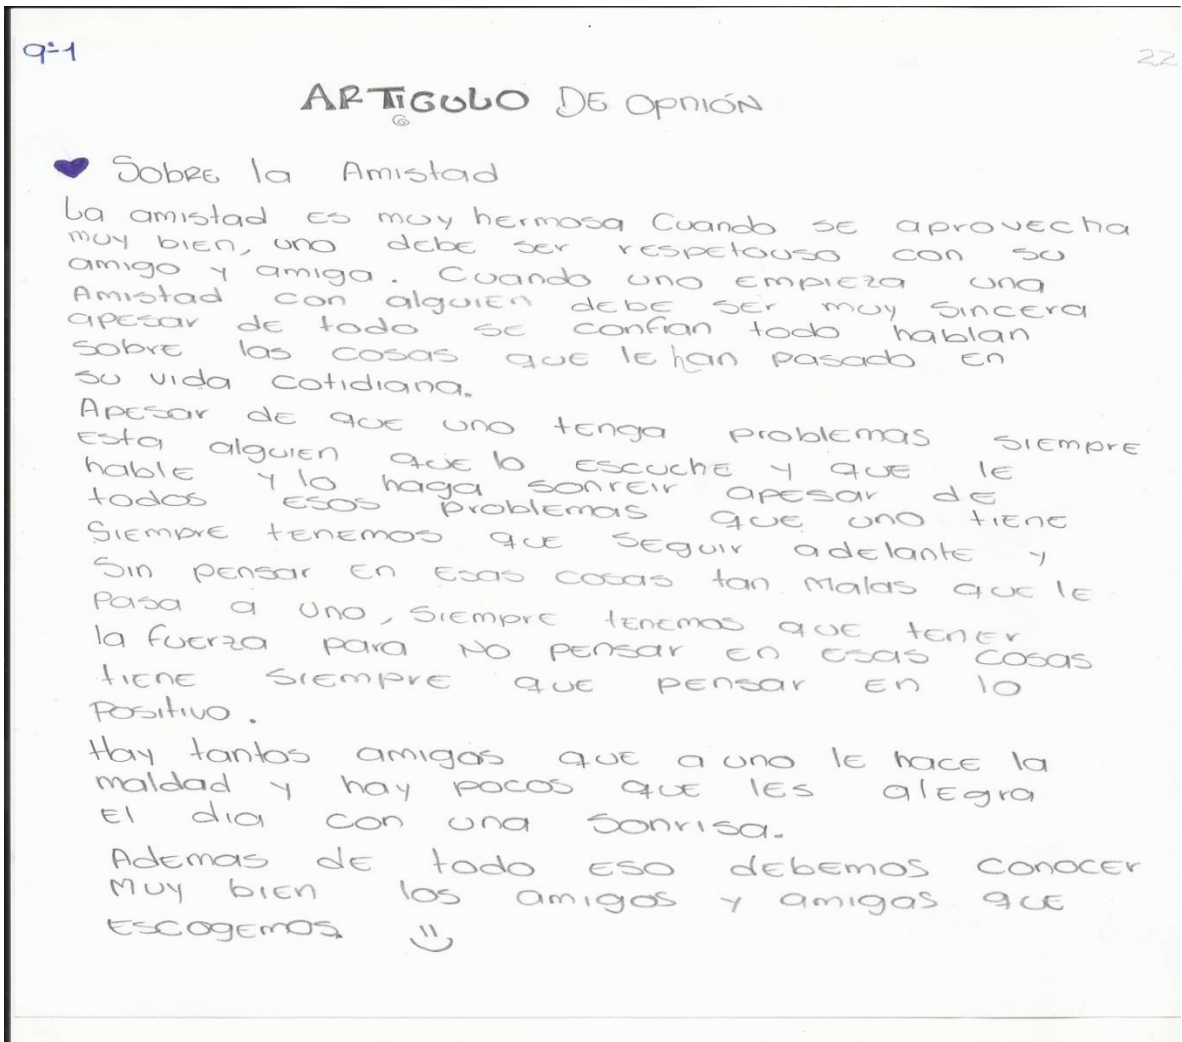 9º-1
22
ARTiCULO DE OPNIÓN
Sobre la Amistad
La amistad es muy hermosa Cuando se aprovecha
muy bien, uno debe ser respetouso con su
amigo y amiga. Cuando uno empieza una
Amistad con alguien debe ser muy sincera
apesar de todo se confian todo hablan
sobre las cosas que le han pasado en
su vida cotidiana.
Apesar de que uno tenga problemas siempre
esta alguien que lo escuche y que le
hable y lo haga sonreir apesar de
todos esos problemas que uno tiene
Siempre tenemos que seguir adelante y
Sin pensar en esas cosas tan malas que le
Pasa a uno, siempre tenemos que tener
la fuerza para no pensar en esas cosas
tiene siempre que pensar en lo
Positivo.
Hay tantos amigos que a uno le hace la
maldad y hay pocos que les alegra
el dia con una sonrisa.
Ademas de todo eso debemos conocer
muy bien los amigos y amigas que
escogemos.